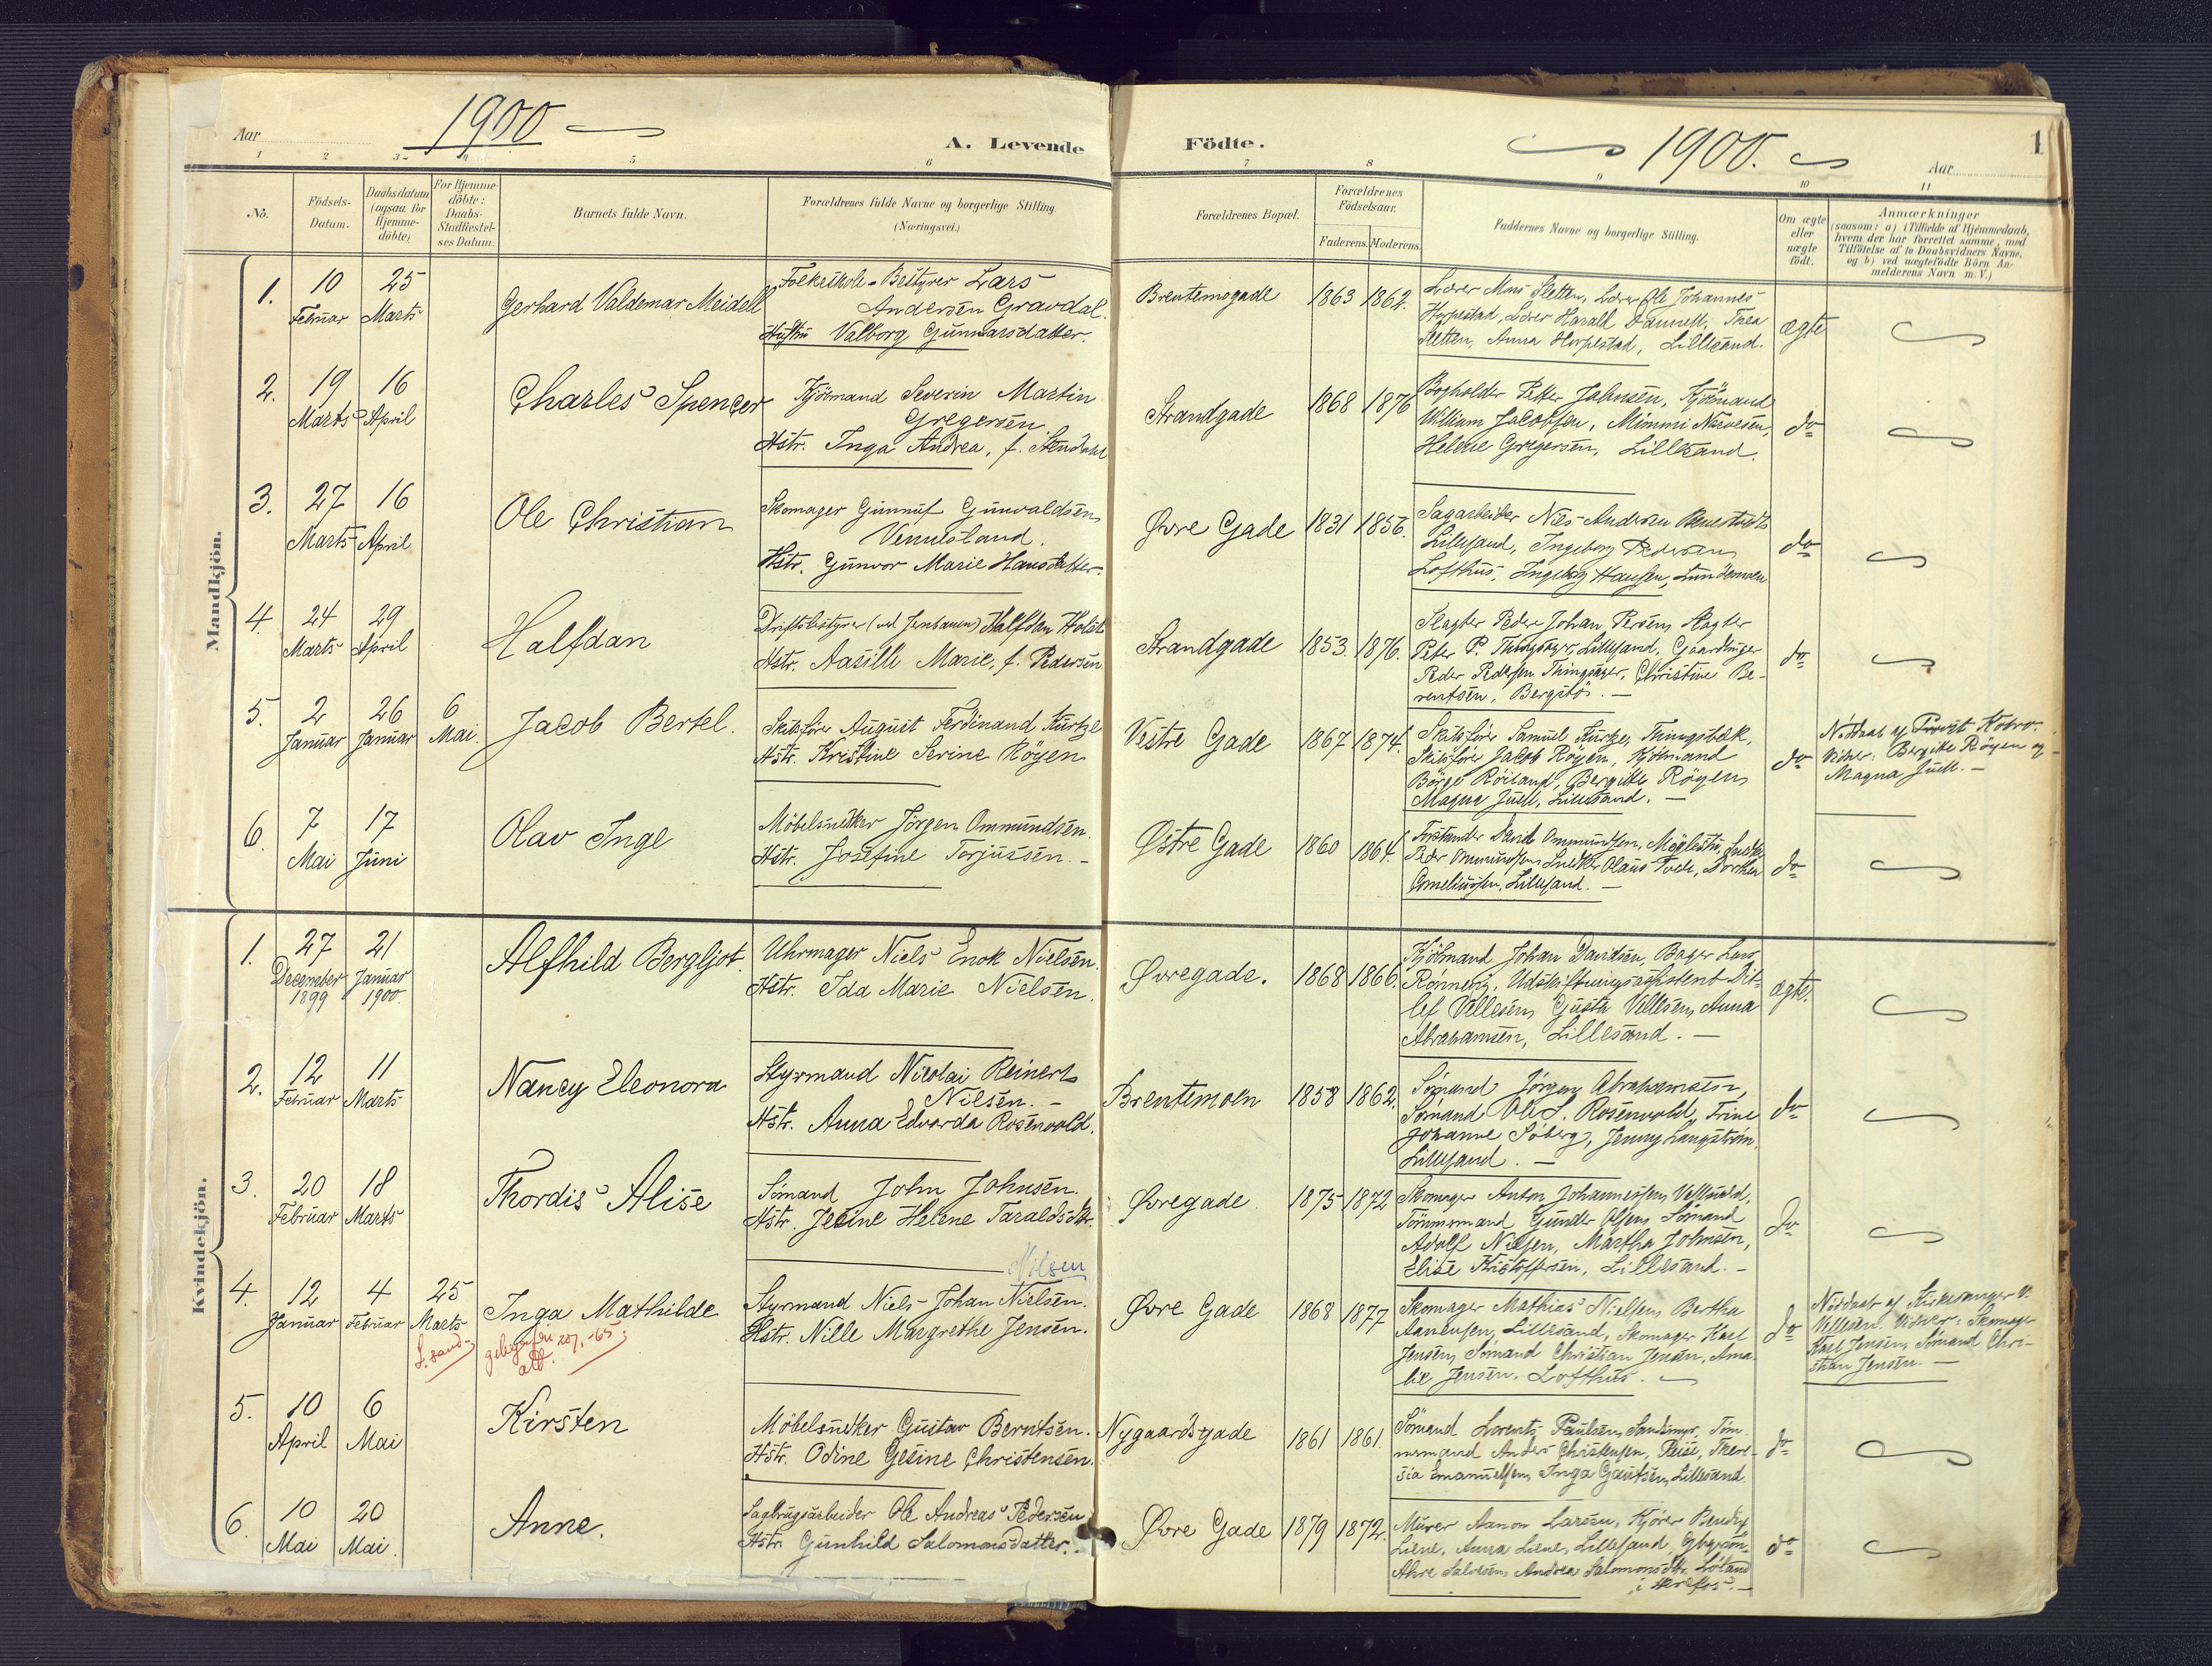 Aar 1900
A. Levende Födte.
1900. Aar 1
1 2 3 4 5 6 7 8 9 10 11
No.
Födsels-
Datum.
Daabsdatum
(ogsaa for
Hjemme-
döbte)
For Hjemme-
döbte:
Daabs-
Stadfæstel-
ses Datum.
Barnets fulde Navn.
Forældrenes fulde Navne og borgerlige Stilling.
(Næringsvei.)
Forældrenes Bopæl.
Forældrenes
Födselsaar.
Faderens. Moderens.
Faddernes Navne og borgerlige Stilling.
Om ægte
eller
uægte
födt.
Anmærkninger
(saasom: a) i Tilfælde af Hjemmedaab,
hvem der har forrettet samme, med
Tilföielse af to Daabsvidners Navne,
og b) ved uægtefödte Börn An-
melderens Navn m. V.)
Mandkjön.
1. 10 Februar 25 Marts Gerhard Valdemar Meidell
Folkeskole-Bestyrer Lars
Andersen Gravdal.
Hustru Valborg Gunnarsdatter.
Brentemogade 1863 1862.
Lærer Mons Sletten, Lærer Ole Johannes
Horpestad, Lærer Harald Dannell, Thea
Sletten, Anna Horpestad, Lillesand.
ægte
2. 19 Marts 16 April Charles Spencer
Kjömand Severin Martin
Gregersen
Hstr. Inga Andrea, f. Stendahl
Strandgade 1868 1876
Bogholder Petter Jahnsen, Kjömand
William Jacobsen, Mimmi Narvesen,
Helene Gregersen, Lillesand.
do
3. 27 Marts 16 April Ole Christian
Skomager Gunnuf Gunvaldsen
Vennesland.
Hstr. Gunvor Marie Hansdatter.
Øvre Gade 1831 1856.
Sagarbeider Nils Andersen
Lillesand, Ingeborg Pedersen
Lofthus, Ingeborg Hansen, Lundemoen
do
4. 24 Marts 29 April Halfdan
Driftsbestyrer (ved Jernbanen) Halfdan Holst
Hstr. Aasille Marie, f. Pedersen
Strandgade 1853. 1876.
Slagter Peder Johan Persen, Slagter
Peter P. Thingsager, Lillesand, Gaardbruger
Peder Pedersen Thingsager, Christine Be-
rentsen, Bergstö. —
do
5. 2 Januar 26 Januar 6 Mai Jacob Bertel.
Skibsförer August Ferdinand Kurtze
Hstr. Kristine Serine Röyen
Vestre Gade 1867 1874.
Skibsförer Samuel Kurtze, Thingsbæk,
Skibsförer Jacob Röyen, Kjömand
Börge Röiland, Bergitte Röyen,
Magna Juell, Lillesand. —
do
Nöddaab af Provst
Vidner: Bergitte Röyen og
Magna Juell. —
6. 7 Mai 17 Juni Olav Inge
Möbelsnedker Jörgen Ommundsen.
Hstr. Josefine Torjussen. —
Østre Gade 1860 1864.
Forstander David Ommundsen, Möglestu, Snedker
Peder Ommundsen, Snedker Olaus Tvede, Dorthea
Corneliussen, Lillesand. —
do
Kvindekjön.
1. 27 December 1899 21 Januar 1900. Alfhild Bergljot.
Uhrmager Niels Enok Nielsen.
Hstr. Ida Marie Nielsen.
Øvregade. 1868 1866.
Kjömand Johan Davidsen, Bager Lars
Rönning, Udskiftningsassistent Dit-
lef Vellesen, Gusta Vellesen, Anna
Abrahamsen, Lillesand. —
ægte.
2. 12 Februar 11 Marts Nancy Eleonora
Styrmand Nicolai Reinert
Nilsen. —
Hstr. Anna Edvarda Rosenvold.
Brentemoen 1858 1862.
Sömand Jörgen Abrahamsen,
Sömand Ole S. Rosenvold, Trine
Johanne Söberg, Jenny Langström,
Lillesand. —
do
3. 20 Februar 18 Marts Thordis Alise
Sömand John Johnsen.
Hstr. Jesine Helene Taraldsdtr.
Øvregade 1875 1872
Skomager Anton Johannessen, Vallesværd,
Tömmermand Gunder Olsen, Sömand
Adolf Nilsen, Martha Johnsen,
Elise Kristoffersen, Lillesand. —
do
Nilsen
4. 12 Januar 4 Februar 25 Marts Inga Mathilde
L.sand
207, -65
att.
Styrmand Niels Johan Nielsen.
Hstr. Nille Margrethe Jensen.
Øvre Gade 1868 1877
Skomager Mathias Nielsen, Bertha
Aanensen, Lillesand, Skomager Karl
Jensen, Sömand Christian Jensen, Ama-
lie Jensen, Lofthus. —
do
Nöddaab af Kirkesanger V.
Vellesen. Vidner: Skomager
Karl Jensen, Sömand Chri-
stian Jensen. —
5. 10 April 6 Mai Kirsten
Möbelsnedker Gustav Berntsen.
Hstr. Odine Gesine Christensen.
Nygaardsgade 1861 1861.
Sömand Lorentz Paulsen, Sandsmyr, Töm-
mermand Anders Christensen, There-
sia Emanuelsen, Inga Gautesen, Lillesand.
do
6. 10 Mai 20 Mai. Anne.
Sagbrugsarbeider Ole Andreas Pedersen
Hstr. Gunhild Salomonsdatter.
Øvre Gade 1879 1872.
Murer Aanon Larsen, Kjörer Bendix
Liene, Anna Liene, Lillesand,
Salvesen, Andrea Salomonsdtr.
do